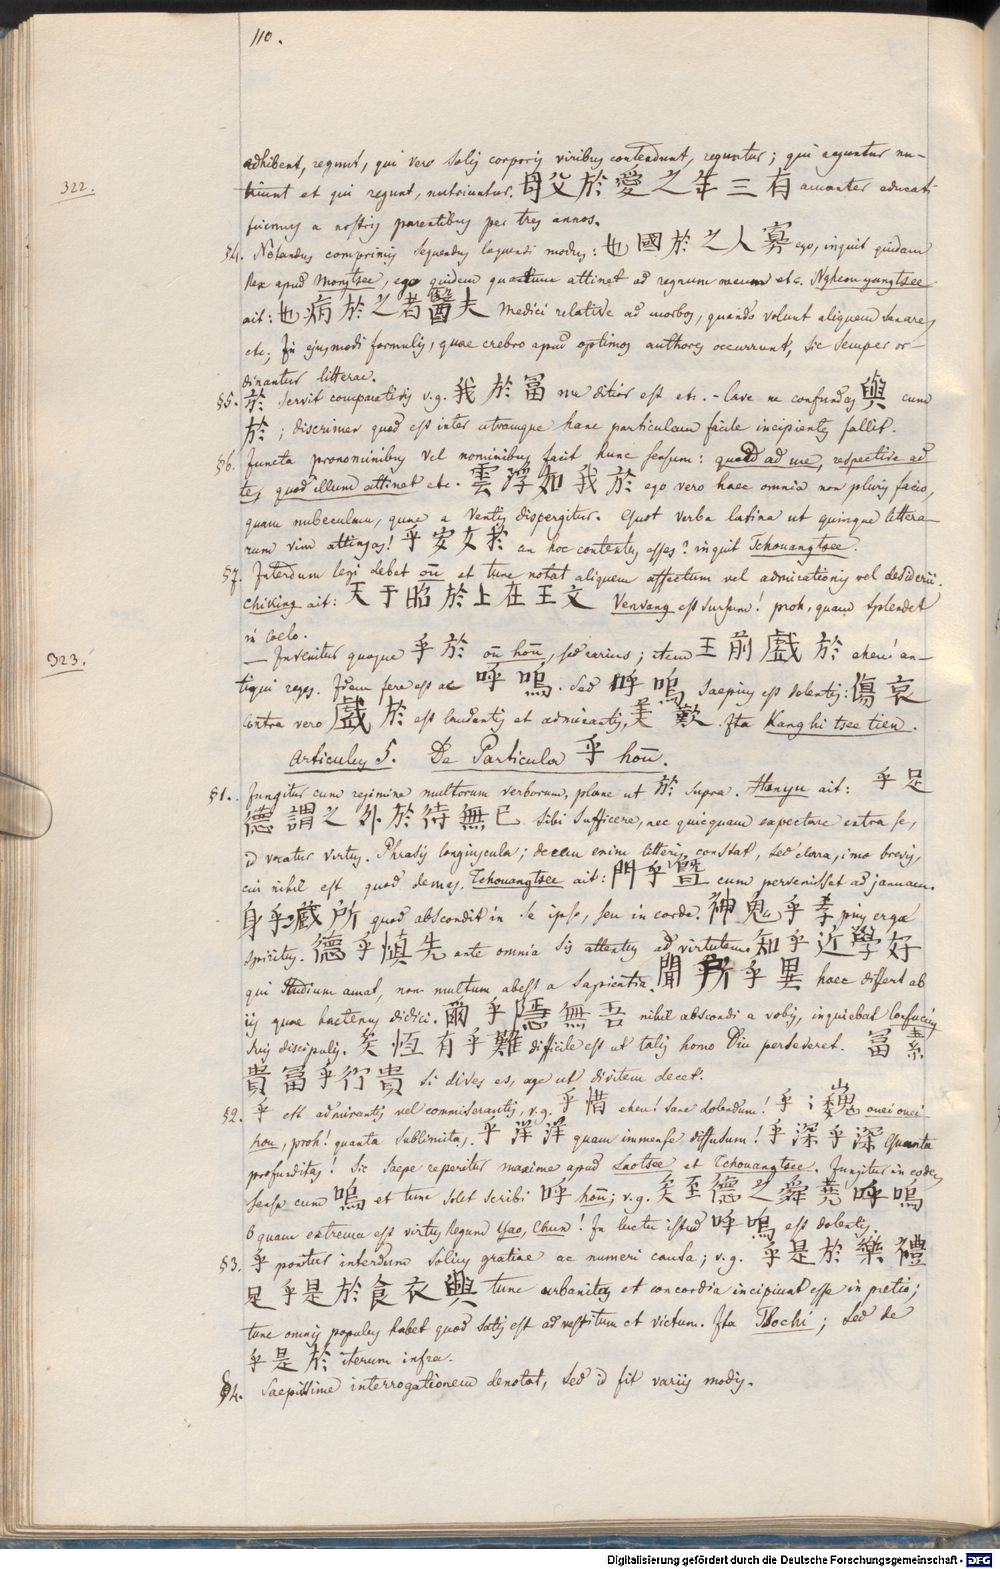 110.
adhibent, regunt, qui vero solis corporis viribus contendunt, reguntur; qui reguntur nu-
322.
triunt et qui regunt, nutriuntur. 母父於愛之年三有 amanter educati
fuimus a nostris parentibus per tres annos.
§4. Notandus comprimis sequendus loquendi modus: 也國於之人寡 ego, inquit quidam
Rex apud Mongtsee, ego quidem quantum attinet ad regnum meum etc. Ngheou yangtsee
ait: 也病於之者醫夫 Medici relative ad morbos, quando volunt aliquem sanare,
etc; In ejusmodi formulis, quae crebro apud optimos authores occurrunt, sic semper or-
dinantur litterae.
§5. 於 servit comparativis v.g. 我於富 me ditior est etc. - Cave ne confundas 與 cum
於; discrimen quod est inter utramque hanc particulam facile incipientes fallit.
§6. Juncta pronominibus vel nominibus facit hunc sensum: quod ad me, respective ad
te, quod illum attinet etc. 雲浮如我於 ego vero haec omnia non pluris facio,
quam nubeculam, quae a ventis dispergitur. Quot verba latina ut quinque littera-
rum vim attingas! 乎安女於 an hoc contentus esses? inquit Tchouangtsee.
§7. Interdum legi debet oū et tunc notat aliquem affectum vel admirationis vel desiderii.
Chiking ait: 天于昭於上在王文 Venvang est sursum! proh, quam splendet
in coelo.
323.
— Invenitur quoque 乎於 oū hoū, sed rarius; item 王前戲於 eheu! an-
tiqui reges. Idem fere est ac 呼嗚. Sed 呼嗚 saepius est dolentis: 傷哀
Contra vero 戲於 est laudantis et admirantis, 美歎. Ita Kang hi tsee tien.
Articulus 5. De Particula 乎 hoū.
§1. Jungitur cum regimine multorum verborum, plane ut 於 supra. Hanyu ait: 乎足
德謂之外於待無已 sibi sufficere, nec quicquam expectare extra se,
id vocatur virtus. Phrasis longiuscula; decem enim litteris constat, sed clara, imo brevis,
cui nihil est quod demas. Tchouangtsee ait: 門乎暨 cum pervenisset ad januam.
身乎藏所 quod abscondit in se ipso, seu in corde. 神鬼乎孝 pius erga
spiritus. 德乎慎先 ante omnia sis attentus ad virtutem. 知乎近學好
qui studium amat, non multum abest a sapientia. 聞所乎異 haec differt ab
iis quae hactenus didici. 爾乎隱無吾 nihil abscondi a vobis, inquiebat Confucius
suis discipulis. 矣恆有乎難 difficile est ut talis homo diu perseveret. 富素
貴富乎行貴 si dives es, age ut divitem decet.
§2. 乎 est admirantis vel commiserantis, v.g. 乎惜 eheu! sane dolendum! 乎〻巍 ouei ouei
hou, proh! quanta sublimitas. 乎洋洋 quam immense diffusum! 乎深乎深 Quanta
profunditas! Sic saepe reperitur maxime apud Laotsee et Tchouangtsee. Jungitur in eodem
sensu cum 嗚 et tunc solet scribi 呼 hoū; v.g. 矣至德之舜堯呼嗚
O quam extrema est virtus Regum Yao, Chun! In luctu istud 呼嗚 est dolentis.
§3. 乎 ponitur interdum solius gratiae ac numeri causa; v.g. 乎是於樂禮
足乎是於食衣興 tunc urbanitas et concordia incipiunt esse in pretio;
tunc omnis populus habet quod satis est ad vestitum et victum. Ita Tsochi; sed de
乎是於 iterum infra.
§4. Saepissime interrogationem denotat, sed id fit variis modis.
Digitalisierung gefördert durch die Deutsche Forschungsgemeinschaft - DFG